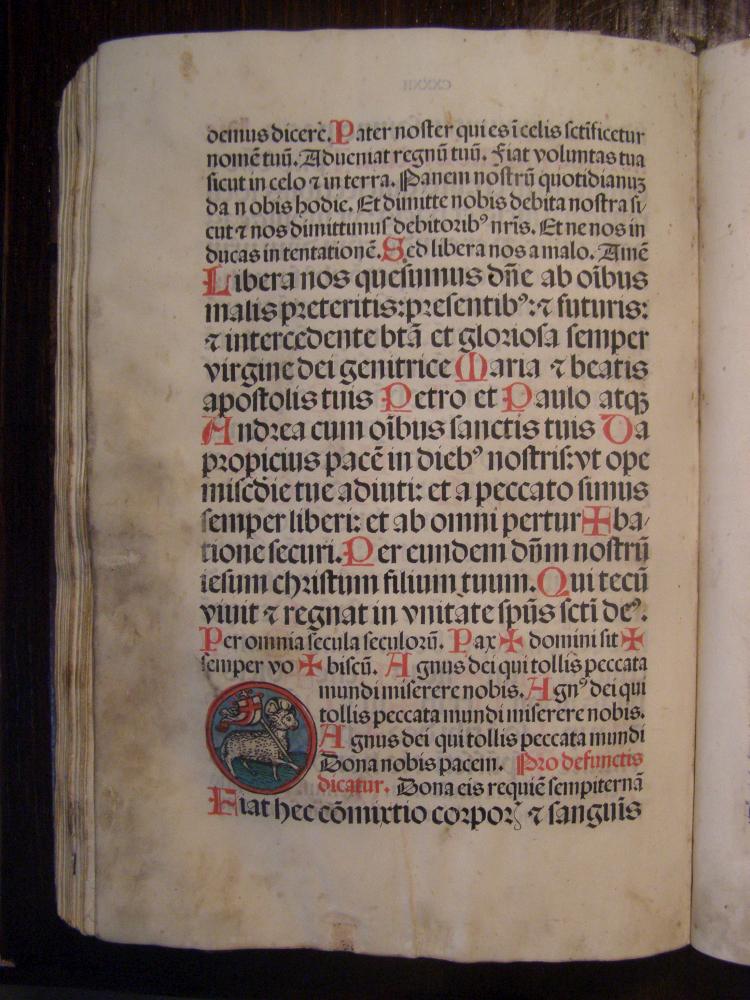 demus dicere. Pater noster qui es ī celis sctīficetur
nomē tuū. Adueniat regnū tuū. Fiat voluntas tua
sicut in celo ⁊ in terra. Panem nostrū quotidianuꝫ
da n obis hodie. Et dimitte nobis debita nostra si⸗
cut ⁊ nos dimittimus debitoribꝰ nr̄is. Et ne nos in
ducas in tentationē. Sed libera nos a malo. Amē
Libera nos quesumus dn̄e ab oībus
malis preteritis: presentibꝰ: ⁊ futuris:
⁊ intercedente btā et gloriosa semper
virgine dei genitrice Maria ⁊ beatis
apostolis tuis Petro et Paulo atqꝫ
Andrea cum oībus sanctis tuis Da
propicius pacē in diebꝰ nostris: vt ope
misc̄die tue adiuti: et a peccato simus
semper liberi: et ab omni pertur✠ba⸗
tione securi. Per eundem dūm nostrū
iesum christum filium tuum. Qui tecū
viuit ⁊ regnat in vnitate sp̄us sctī deꝰ.
Per omnia secula seculorū. Pax ✠ domini sit ✠
semper vo ✠ biscū. Agnus dei qui tollis peccata
mundi miserere nobis. Agnꝰ dei qui
tollis peccata mundi miserere nobis.
Agnus dei qui tollis peccata mundi
Dona nobis pacem. Pro defunctis
dicatur. Dona eis requiē sempiternā
Fiat hec cōmixtio corporꝭ ⁊ sanguīs
CXXXII